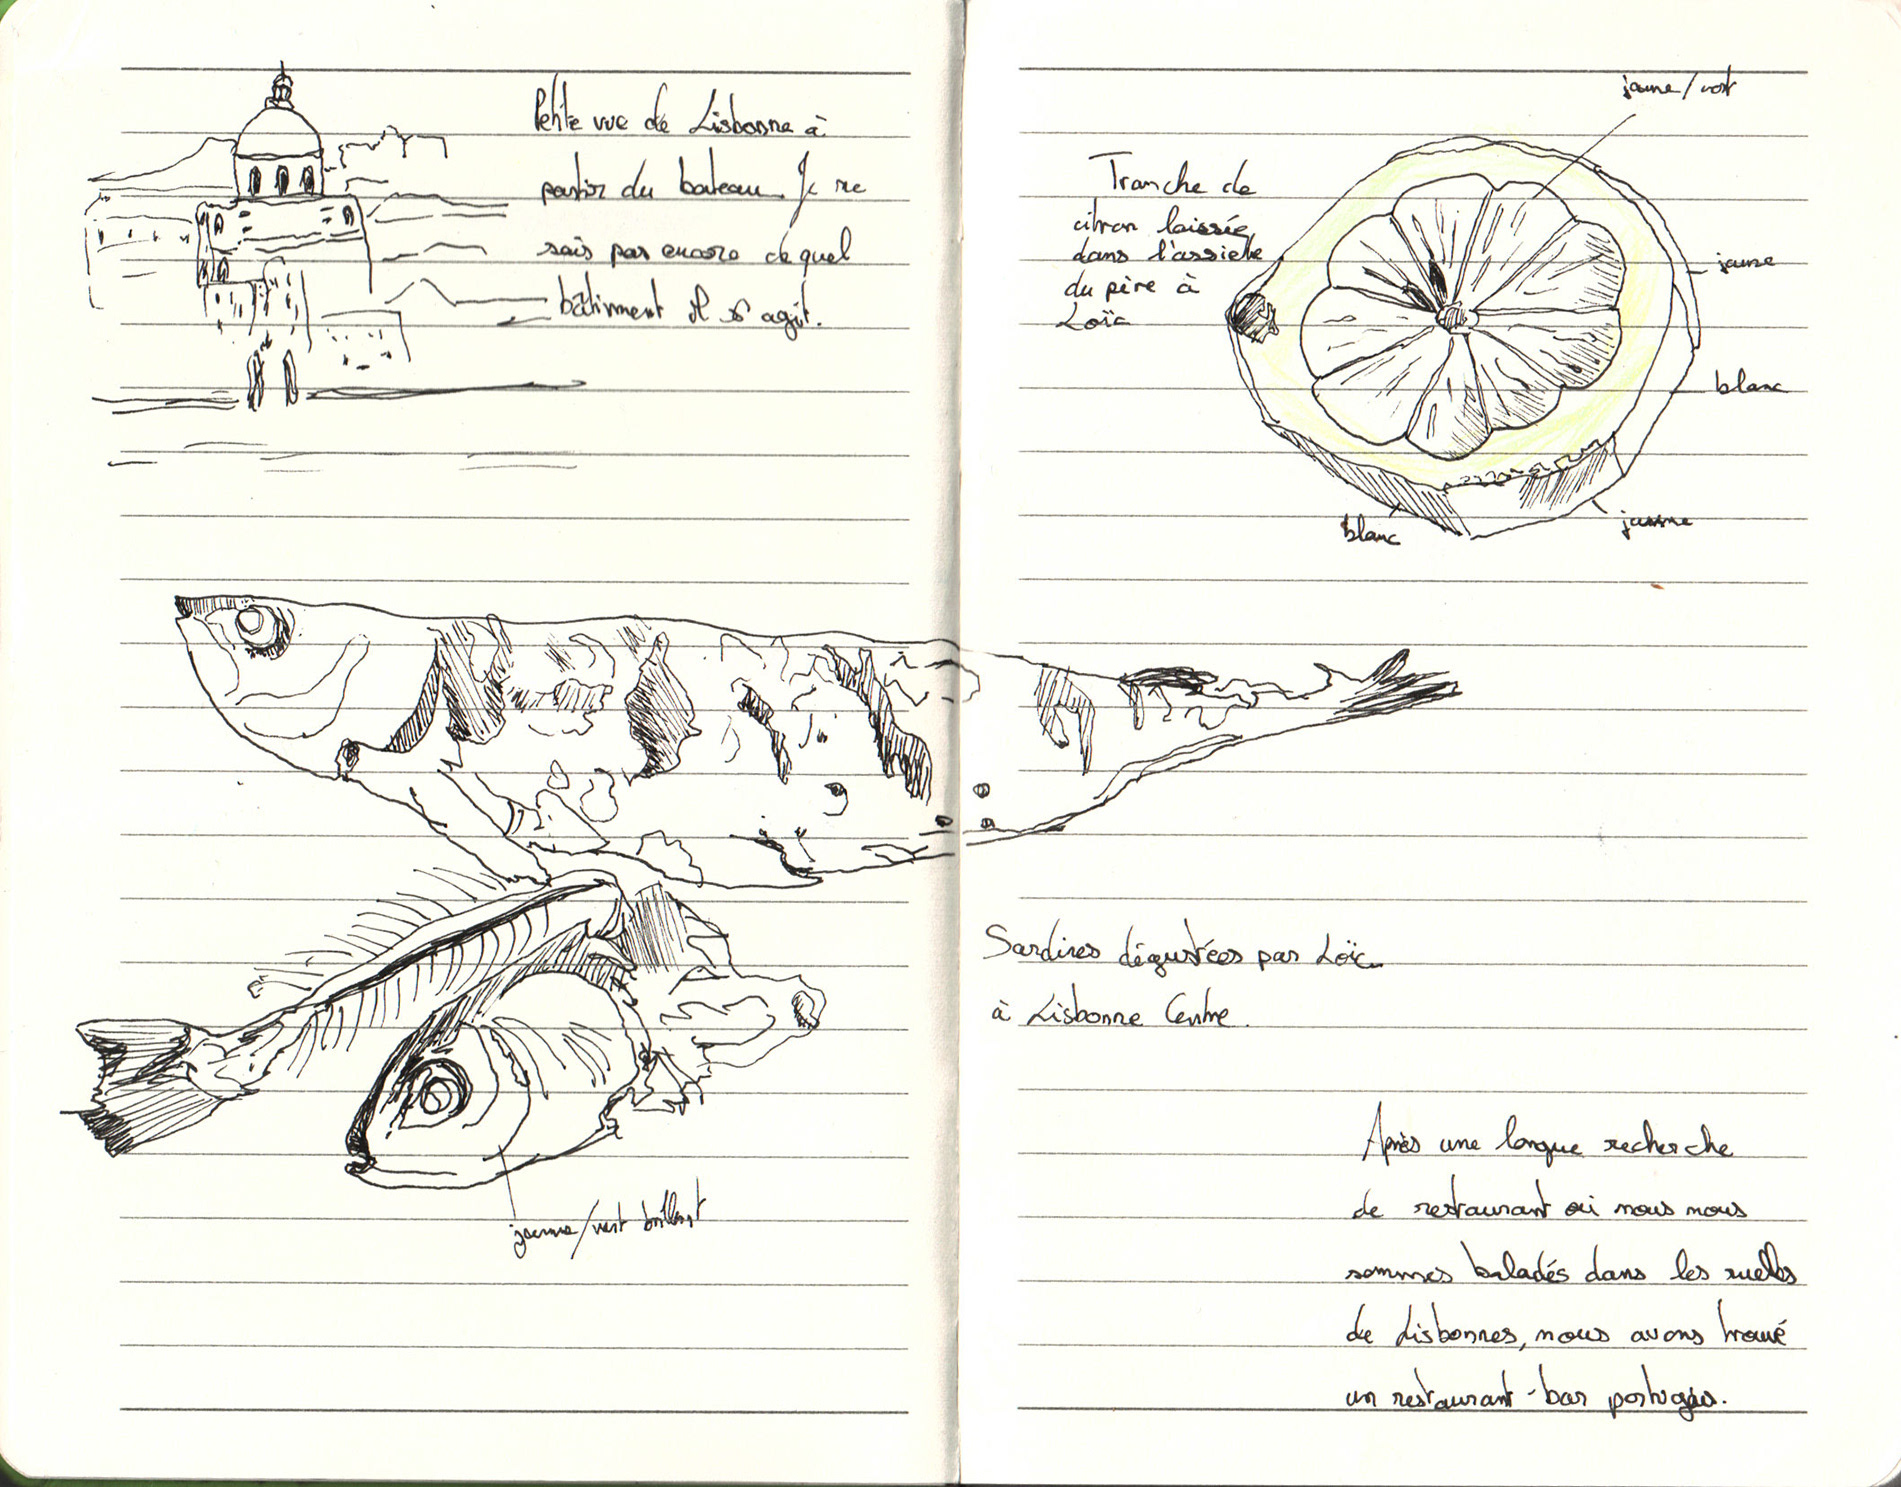 Petite vue de Lisbonne à
partir du bateau. Je ne
sais pas encore de quel
bâtiment il s'agit.
jaune/vert brillant
jaune/vert
Tranche de
citron laissée
dans l'assiette
du père à
Loïc
jaune
blanc
blanc
jaune
Sardines dégustées par Loïc
à Lisbonne Centre.
Après une longue recherche
de restaurant où nous nous
sommes baladés dans les ruelles
de Lisbonnes, nous avons trouvé
un restaurant-bar portugais.